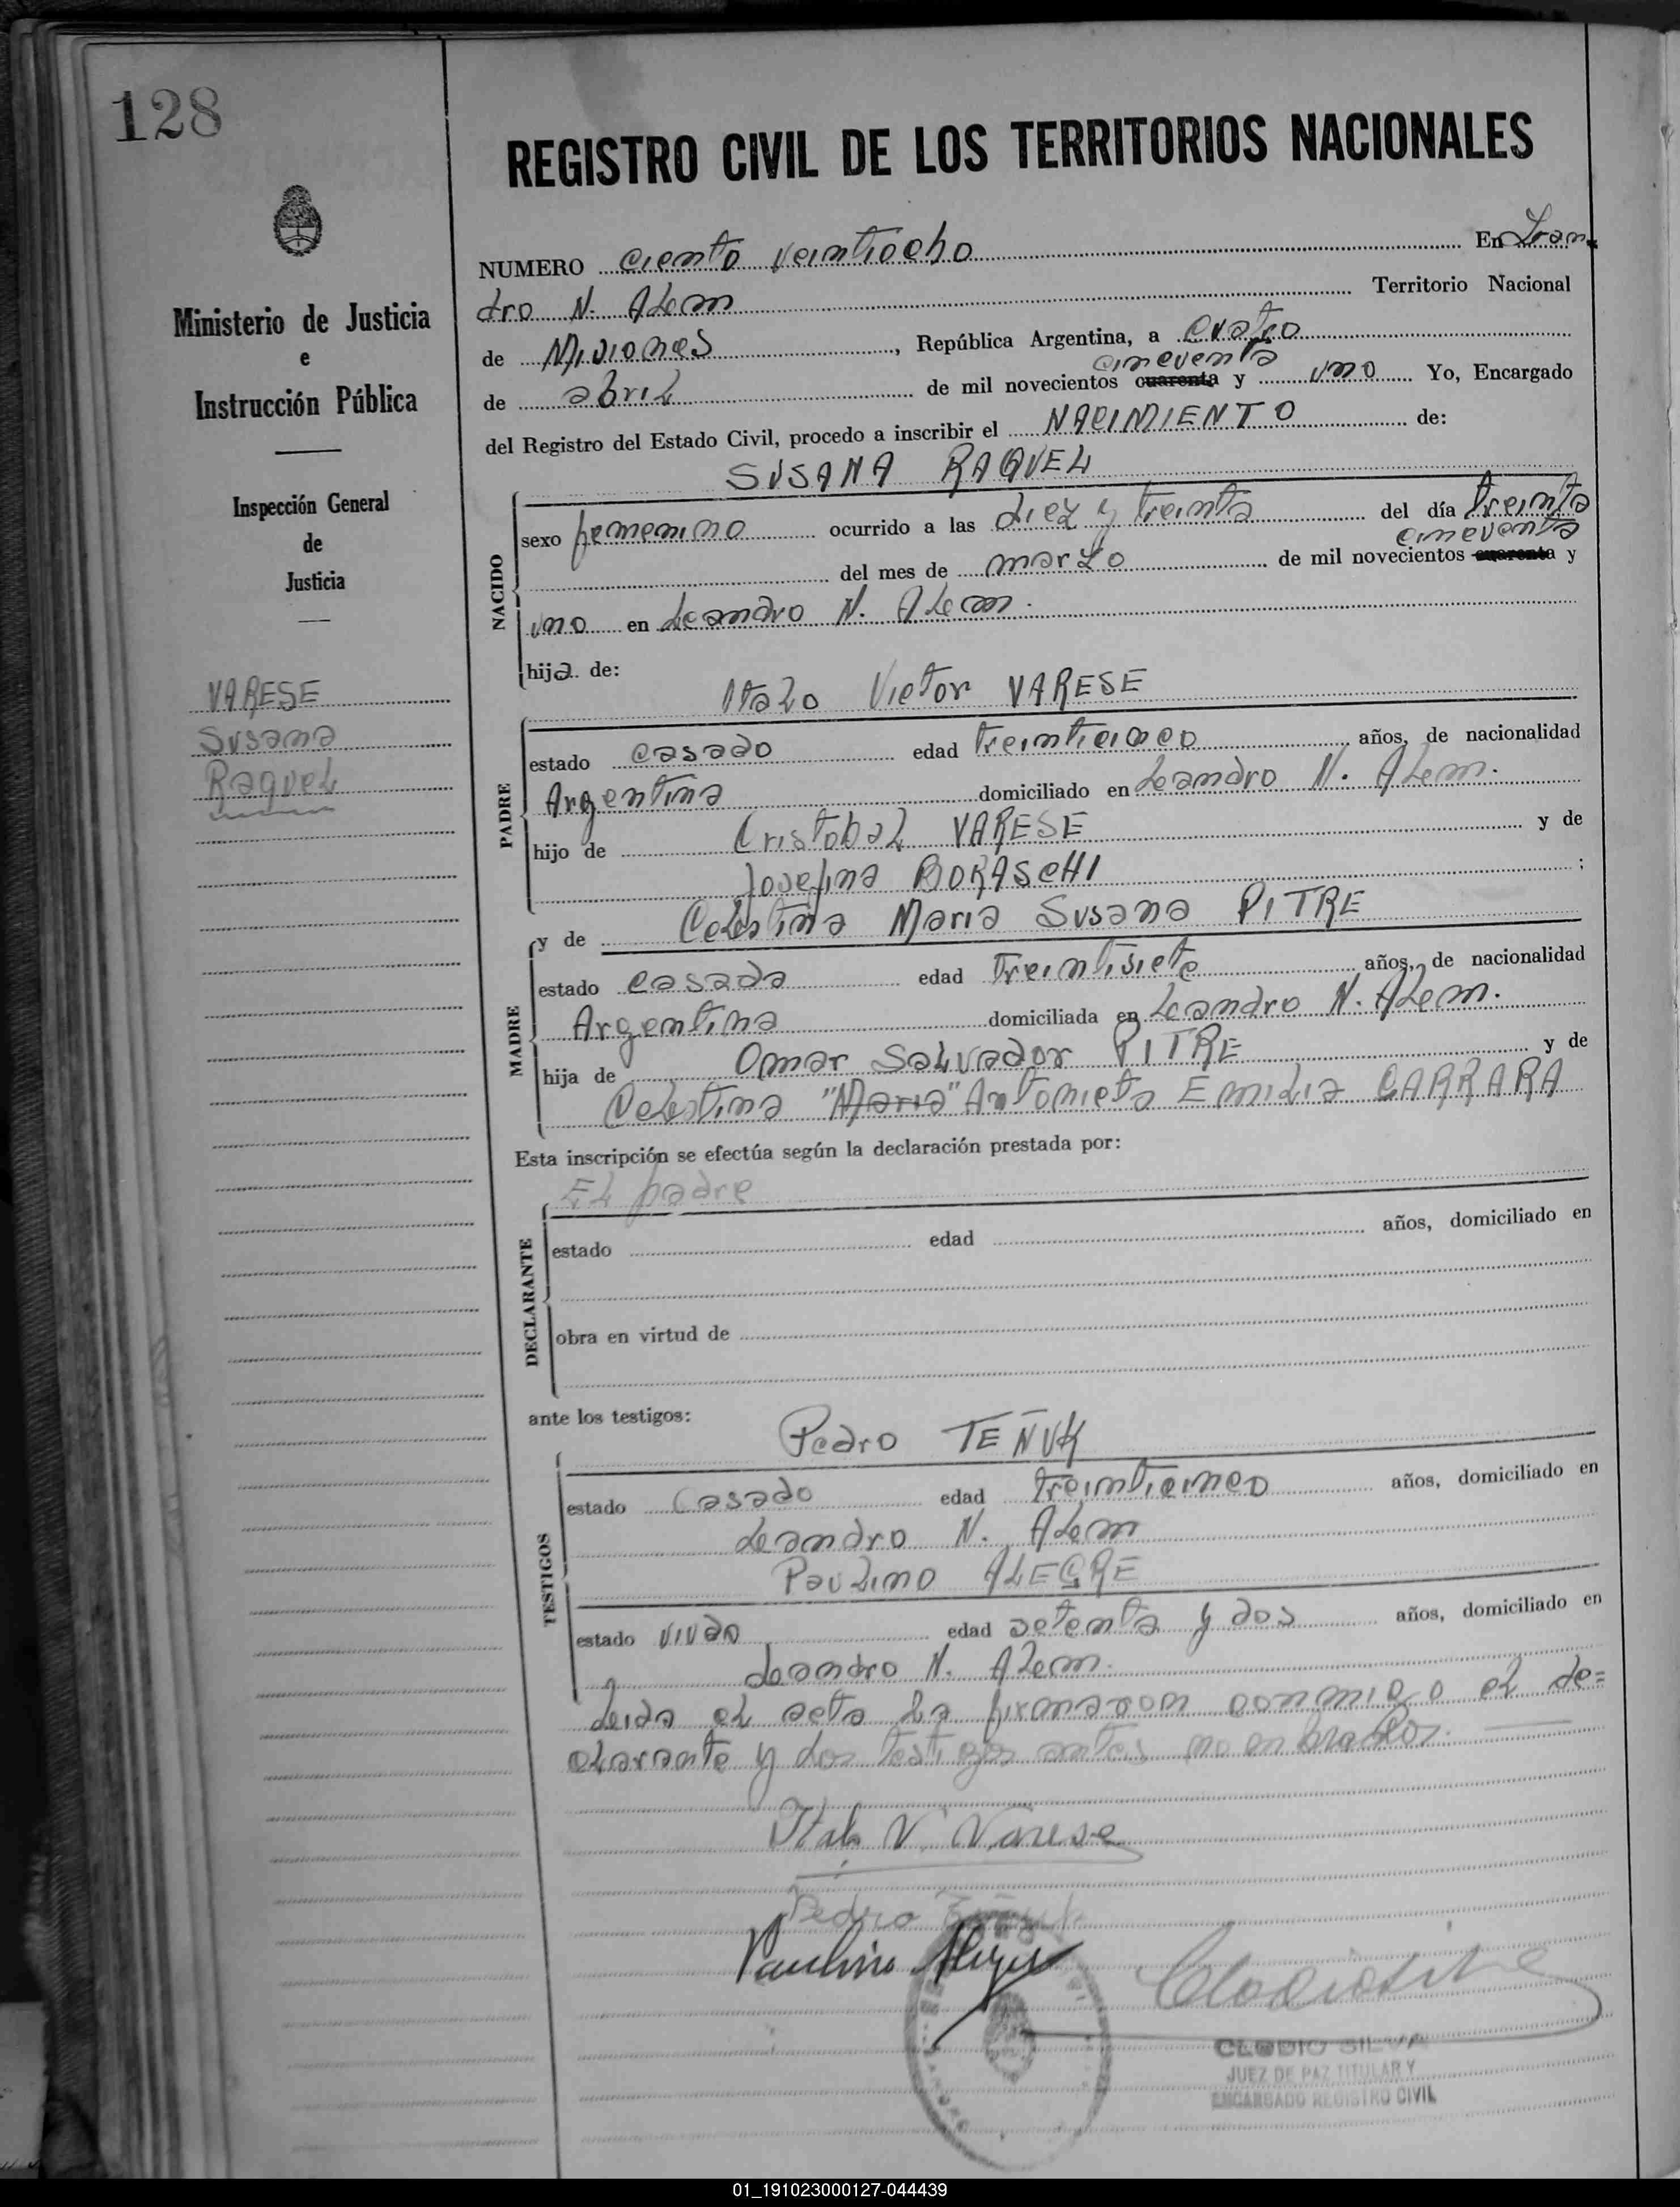 128
Ministerio de Justicia
e
Instrucción Pública
Inspección General
de
Justicia
VARESE
Susana
Raquel
REGISTRO CIVIL DE LOS TERRITORIOS NACIONALES
NUMERO ciento veintiocho En Lean-
dro N. Alem Territorio Nacional
de Misiones, República Argentina, a cuatro
cincuenta
de abril de mil novecientos cuarenta y uno Yo, Encargado
del Registro del Estado Civil, procedo a inscribir el NACIMIENTO de:
SUSANA RAQUEL
NACIDO
sexo femenino ocurrido a las diez y treinta del día treinta
cincuenta
del mes de marzo de mil novecientos cuarenta y
uno en Leandro N. Alem.
hija de:
Italo Victor VARESE
PADRE
estado casado edad treinticinco años, de nacionalidad
Argentina domiciliado en Leandro N. Alem.
hijo de Cristobal VARESE y de
Josefina BORASCHI ;
y de Celestina Maria Susana PITRE
MADRE
estado casada edad treintisiete años, de nacionalidad
Argentina domiciliada en Leandro N. Alem.
hija de Omar Salvador PITRE y de
Celestina "Maria" Antonieta Emilia CARRARA
Esta inscripción se efectúa según la declaración prestada por:
El padre
DECLARANTE
estado edad años, domiciliado en
obra en virtud de
ante los testigos:
Pedro TEÑUK
TESTIGOS
estado Casado edad treinticinco años, domiciliado en
Leandro N. Alem
Paulino ALEGRE
estado viudo edad setenta y dos años, domiciliado en
Leandro N. Alem.
Leida el acta la firmaron conmigo el de=
clarante y los testigos antes nombrados.
Italo V. Varese
Pedro
Paulino Alegre
CLODIO SILVA
JUEZ DE PAZ TITULAR Y
ENCARGADO REGISTRO CIVIL
01_191023000127-044439